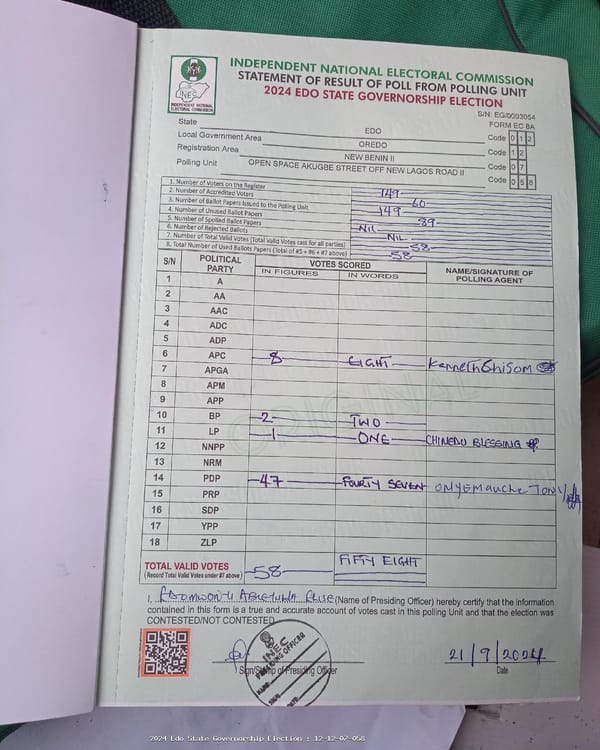 INDEPENDENT NATIONAL ELECTORAL COMMISSION
STATEMENT OF RESULT OF POLL FROM POLLING UNIT
2024 EDO STATE GOVERNORSHIP ELECTION
INEC
INDEPENDENT NATIONAL ELECTORAL COMMISSION
S/N: EG/0003054
FORM EC 8A
State EDO Code 0 1 2
Local Government Area OREDO Code 1 2
Registration Area NEW BENIN II Code 0 7
Polling Unit OPEN SPACE AKUGBE STREET OFF NEW LAGOS ROAD II Code 0 5 8
1. Number of Voters on the Register 149
2. Number of Accredited Voters 60
3. Number of Ballot Papers Issued to the Polling Unit 149
4. Number of Unused Ballot Papers 89
5. Number of Spoiled Ballot Papers NIL
6. Number of Rejected Ballots NIL
7. Number of Total Valid Votes (Total Valid Votes cast for all parties) 58
8. Total Number of Used Ballots Papers (Total of #5 + #6 + #7 above) 58
S/N POLITICAL PARTY VOTES SCORED NAME/SIGNATURE OF POLLING AGENT
IN FIGURES IN WORDS
1 A
2 AA
3 AAC
4 ADC
5 ADP
6 APC 8 EIGHT Kenneth Ghisom
7 APGA
8 APM
9 APP
10 BP 2 TWO
11 LP 1 ONE CHINEDU BLESSING
12 NNPP
13 NRM
14 PDP 47 FOURTY SEVEN ONYEMAUCHE TONY
15 PRP
16 SDP
17 YPP
18 ZLP
ORIGINAL
TOTAL VALID VOTES 58 FIFTY EIGHT
(Record Total Valid Votes under #7 above)
I, (Name of Presiding Officer) hereby certify that the information
contained in this form is a true and accurate account of votes cast in this polling Unit and that the election was
CONTESTED/NOT CONTESTED.
INEC
PRESIDING OFFICER
Sign/Stamp of Presiding Officer
21/9/2024
Date
2024 Edo State Governorship Election : 12-12-07-058